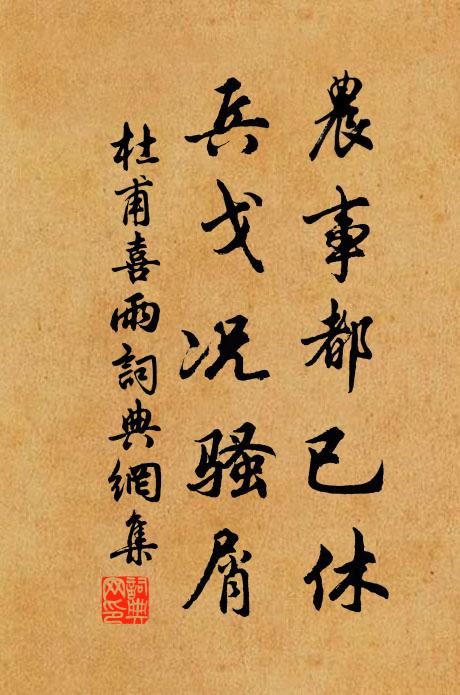 農事都已休
兵戈况騷屑
杜甫喜雨詞典網集
詞典網印